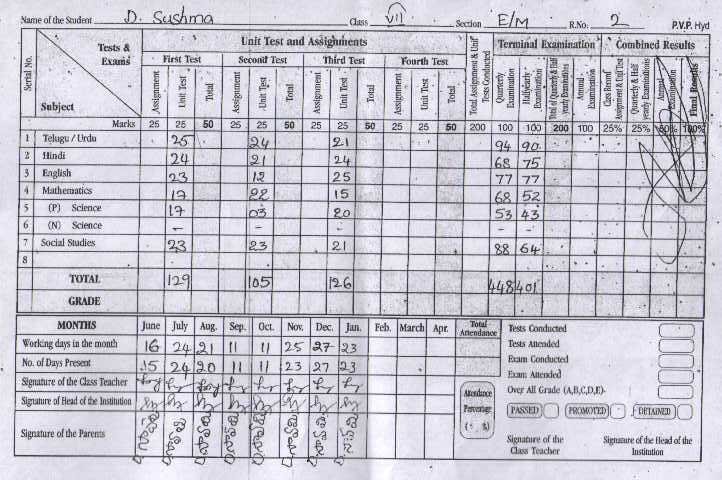 Name of the Student D. Sushma Class VII Section E/M R.No. 2 P.V.P. Hyd
Serial No. Tests & Exams Subject Unit Test and Assignments Terminal Examination Combined Results
First Test Second Test Third Test Fourth Test
Assignment Unit Test Total Assignment Unit Test Total Assignment Unit Test Total Assignment Unit Test Total Total Assignment & Unit Tests Conducted Quarterly Examination Halfyearly Examination Total of Quarterly & Half yearly Examinations Annual Examination Class Record Assignment & Unit Test Quarterly & Half yearly Examinations Annual Examination Final Results
Marks 25 25 50 25 25 50 25 25 50 25 25 50 200 100 100 200 100 25% 25% 50% 100%
1 Telugu / Urdu 25 24 21 94 90
2 Hindi 24 21 24 68 75
3 English 23 12 25 77 77
4 Mathematics 17 22 15 68 52
5 (P) Science 17 03 20 53 43
6 (N) Science - - - - -
7 Social Studies 23 23 21 88 64
8
TOTAL 129 105 126 448 401
GRADE
MONTHS June July Aug. Sep. Oct. Nov. Dec. Jan. Feb. March Apr. Total Attendance
Working days in the month 16 24 21 11 11 25 27 23
No. of Days Present 15 24 20 11 11 23 27 23
Signature of the Class Teacher
Signature of Head of the Institution
Signature of the Parents
Attendance Percentage ( %)
Tests Conducted
Tests Attended
Exam Conducted
Exam Attended
Over All Grade (A,B,C,D,E)-
PASSED PROMOTED DETAINED
Signature of the Class Teacher Signature of the Head of the Institution